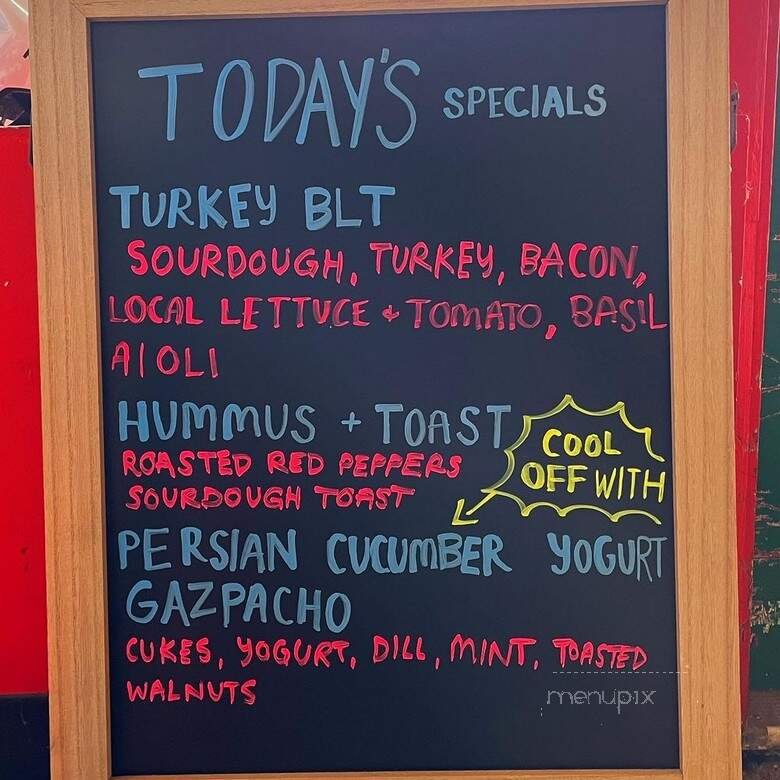 TODAY'S SPECIALS
TURKEY BLT
SOURDOUGH, TURKEY, BACON,
LOCAL LETTUCE + TOMATO, BASIL
AIOLI
HUMMUS + TOAST
ROASTED RED PEPPERS
SOURDOUGH TOAST
COOL
OFF WITH
PERSIAN CUCUMBER YOGURT
GAZPACHO
CUKES, YOGURT, DILL, MINT, TOASTED
WALNUTS
menupix